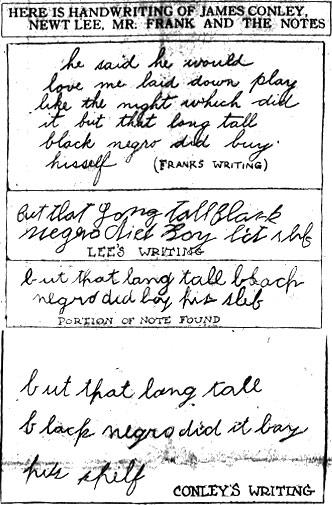 HERE IS HANDWRITING OF JAMES CONLEY,
NEWT LEE, MR. FRANK AND THE NOTES
he said he would
love me laid down play
like the night which did
it but that long tall
black negro did buy
hisself (FRANKS WRITING)
but that long tall black
negro did boy hit slef
LEE'S WRITING
but that long tall black
negro did boy his slef
PORTION OF NOTE FOUND
but that long tall
black negro did it bay
his shelf
CONLEY'S WRITING